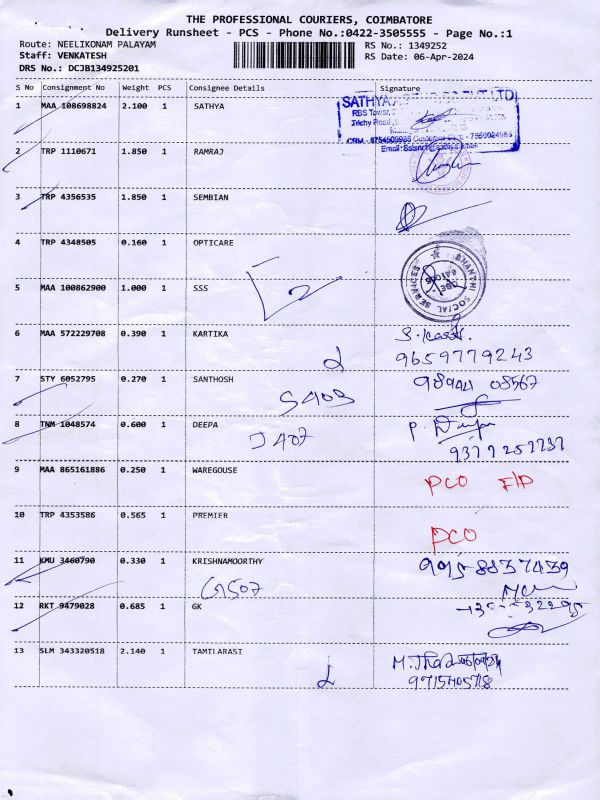 THE PROFESSIONAL COURIERS, COIMBATORE
Delivery Runsheet - PCS - Phone No.:0422-3505555 - Page No.:1
Route: NEELIKONAM PALAYAM
RS No.: 1349252
Staff: VENKATESH
RS Date: 06-Apr-2024
DRS No.: DCJB134925201
S No Consignment No Weight PCS Consignee Details Signature
1 MAA 108698824 2.100 1 SATHYA
SATHYA
RBS Tower,
Trichy Road
2 TRP 1110671 1.850 1 RAMRAJ
3 TRP 4356535 1.850 1 SEMBIAN
4 TRP 4348505 0.160 1 OPTICARE
SHANTHI SOCIAL SERVICES
5 MAA 100862900 1.000 1 SSS
6 MAA 572229708 0.390 1 KARTIKA
9659779243
7 STY 6052795 0.270 1 SANTHOSH
98944 08567
S403
8 TNM 1048574 0.600 1 DEEPA
J407
9 MAA 865161886 0.250 1 WAREGOUSE
PCO F/D
10 TRP 4353586 0.565 1 PREMIER
PCO
11 KMU 3460790 0.330 1 KRISHNAMOORTHY
995 8837439
G507
12 RKT 9479028 0.685 1 GK
13 SLM 343320518 2.140 1 TAMILARASI
9715405718